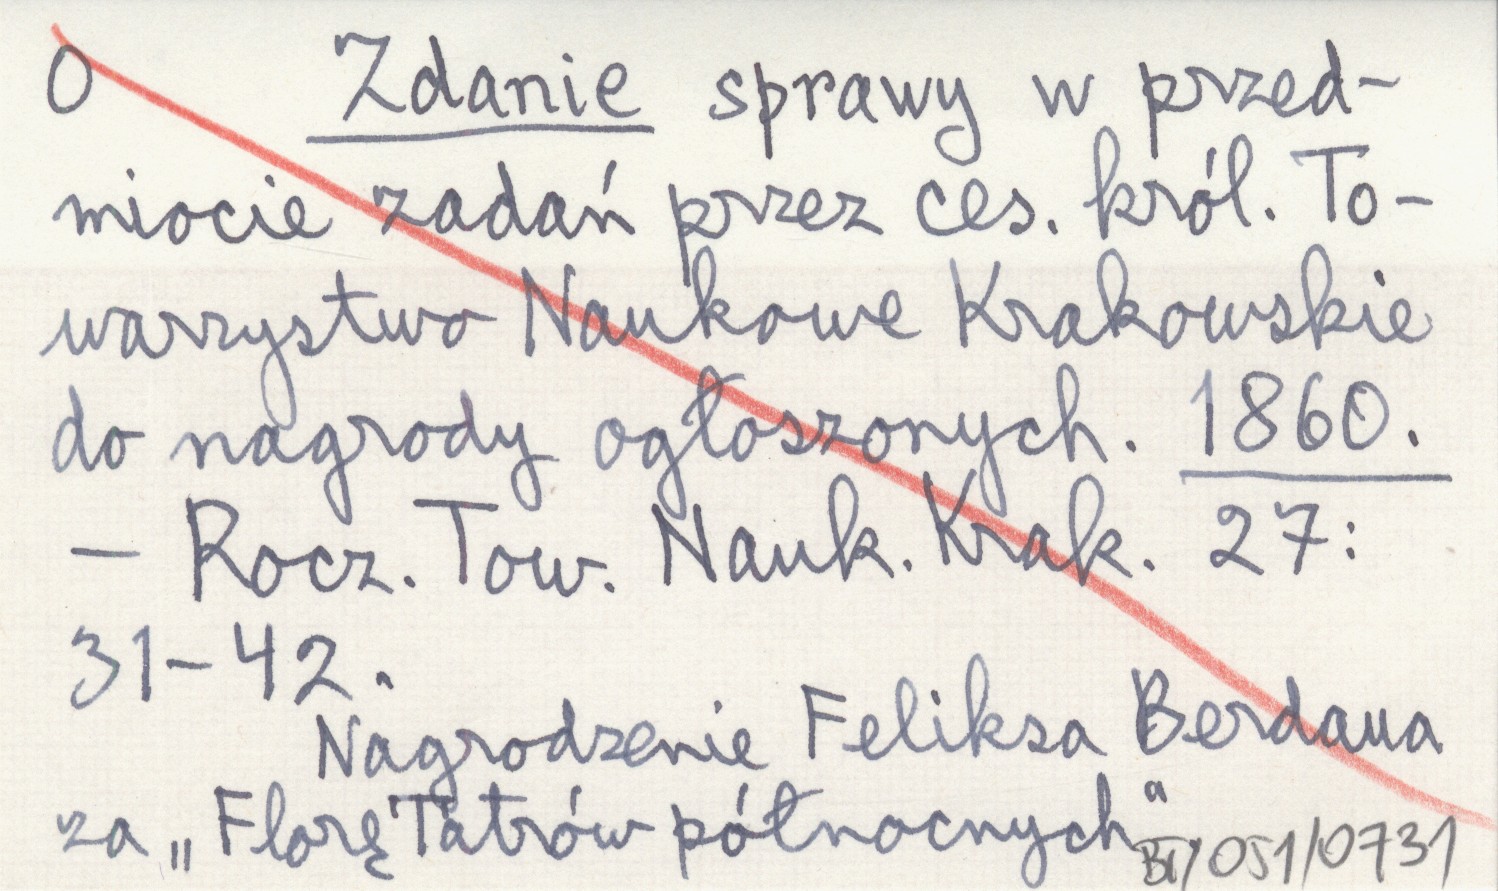 O Zdanie sprawy w przed-
miocie zadań przez ces. król. To-
warzystwo Naukowe Krakowskie
do nagrody ogłoszonych. 1860.
— Rocz. Tow. Nauk. Krak. 27:
31-42.
Nagrodzenie Feliksa Berdaua
za „Florę Tatrów północnych"
BT/051/0731